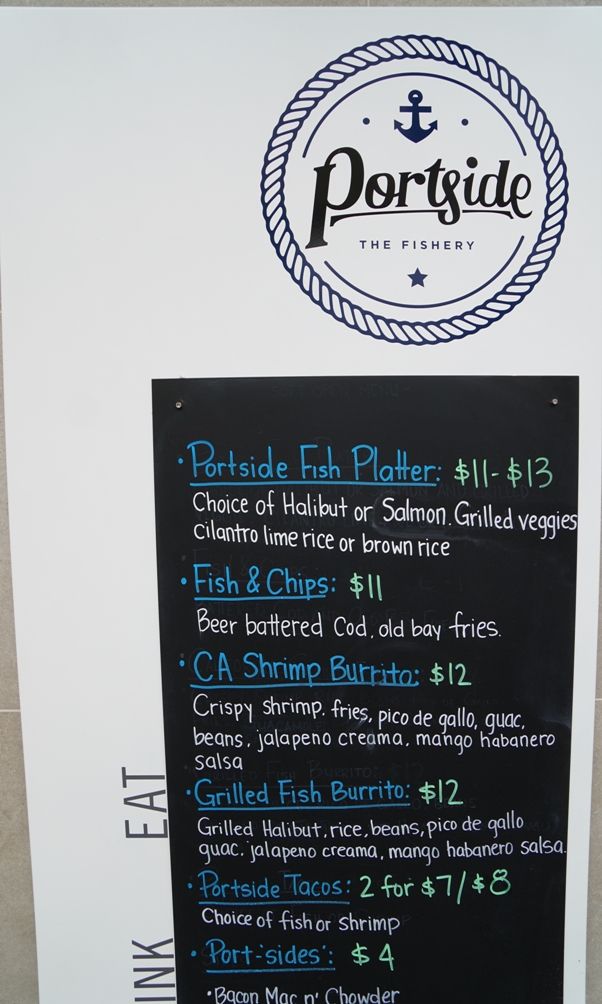 Portside
THE FISHERY
• Portside Fish Platter: $11-$13
Choice of Halibut or Salmon. Grilled veggies
cilantro lime rice or brown rice
• Fish & Chips: $11
Beer battered Cod, old bay fries.
• CA Shrimp Burrito: $12
Crispy shrimp, fries, pico de gallo, guac,
beans, jalapeno creama, mango habanero
salsa
• Grilled Fish Burrito: $12
Grilled Halibut, rice, beans, pico de gallo
guac, jalapeno creama, mango habanero salsa.
• Portside Tacos: 2 for $7/$8
Choice of fish or shrimp
• Port-'sides': $4
• Bacon Mac n' Chowder
EAT
INK